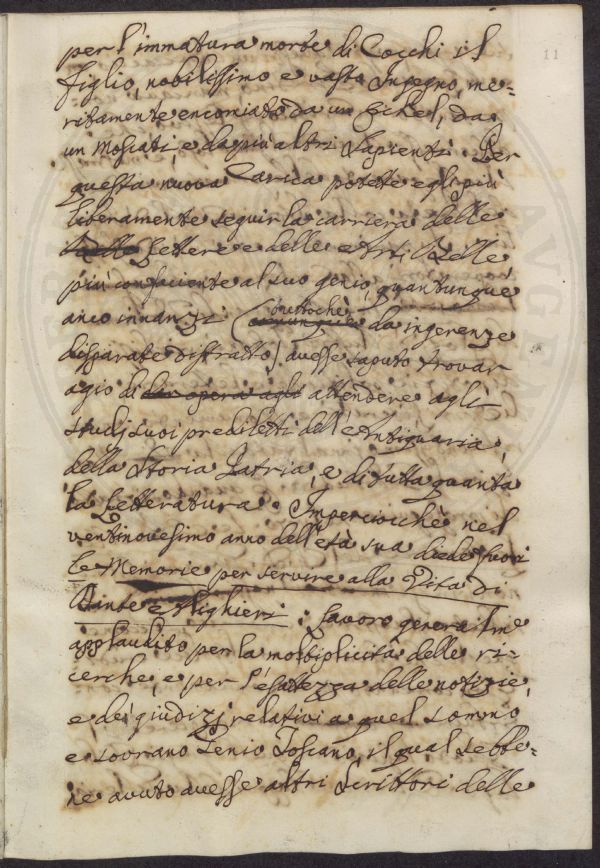 11
per l'immatura morte di Cocchi il
figlio, nobilissimo e vasto Ingegno, me-
ritamente encomiato da un Eckel, da
un Moscati, e da più altri Sapienti. Per
questa nuova Carica potette egli più
liberamente seguir la carriera delle
Lettere e delle Arti Belle
più confaciente al suo genio, quantunque
anco innanzi (tuttochè da ingerenze
disparate distratto) avesse saputo trovar
agio di dar opera agli attendere agli
studj suoi prediletti dell'Antiquaria,
della Storia Patria, e di tutta quanta
la Letteratura. Imperciocchè nel
ventinovesimo anno dell'età sua diede fuori
le Memorie per servire alla Vita di
Dante Alighieri: Lavoro generalme
applaudito per la moltiplicità delle ri-
cerche, e per l'esattezza delle notizie,
e dei giudizj relativi a quel sommo
e sovrano Genio Toscano, il qual sebbe-
ne avuto avesse altri Scrittori delle